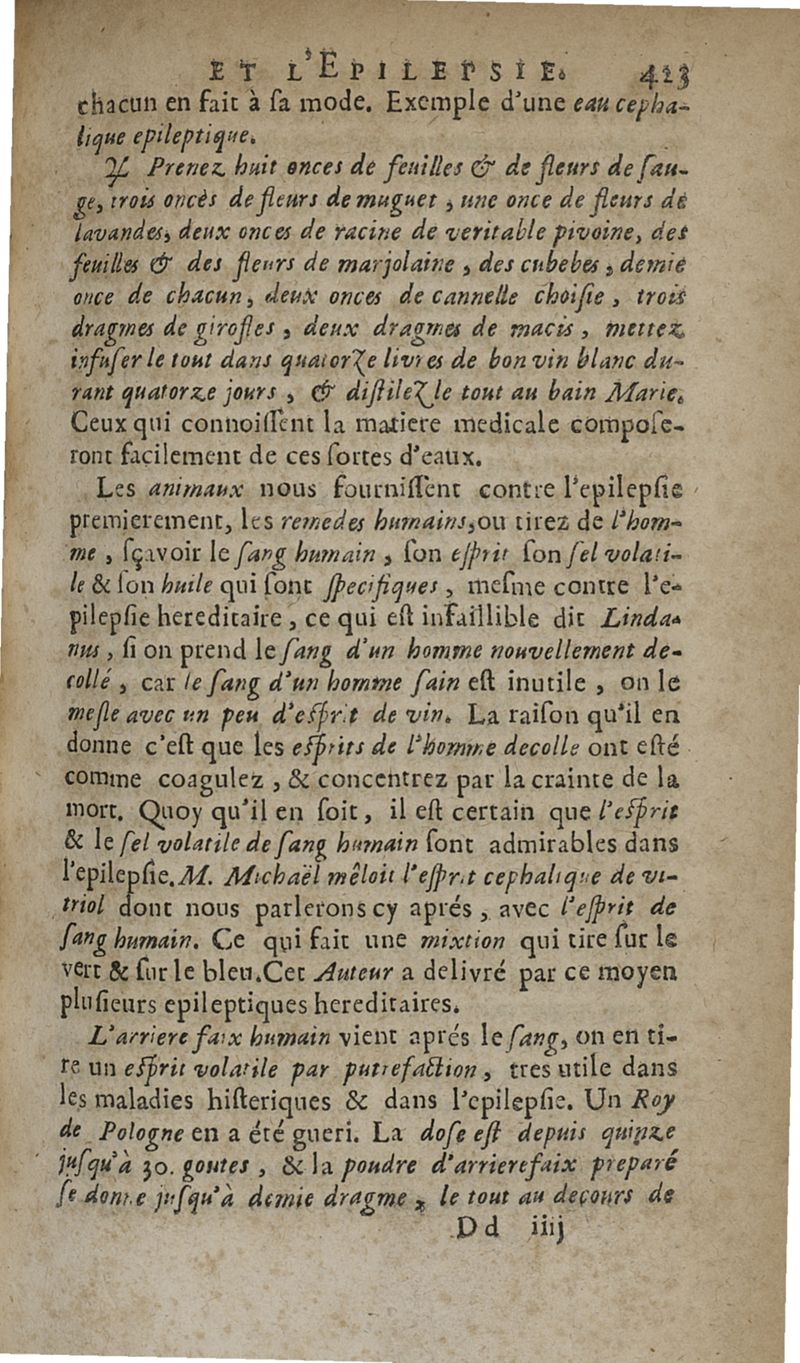 ET L'EPILEPSIE. 423
chacun en fait à ſa mode. Exemple d'une eau cepha-
lique epileptique.
♃ Prenez huit onces de feuilles & de fleurs de ſau-
ge, trois oncès de fleurs de muguet, une once de fleurs de
lavandes, deux onces de racine de veritable pivoine, des
feuilles & des fleurs de marjolaine, des cubebes, demie
once de chacun, deux onces de cannelle choiſie, trois
dragmes de girofles, deux dragmes de macis, mettez
infuſer le tout dans quatorze livres de bon vin blanc du-
rant quatorze jours, & diſtilez le tout au bain Marie.
Ceux qui connoiſſent la matiere medicale compoſe-
ront facilement de ces ſortes d'eaux.
Les animaux nous fourniſſent contre l'epilepſie
premierement, les remedes humains, ou tirez de l'hom-
me, ſçavoir le ſang humain, ſon eſprit ſon ſel volati-
le & ſon huile qui ſont ſpecifiques, meſme contre l'e-
pilepſie hereditaire, ce qui eſt infaillible dit Linda-
nus, ſi on prend le ſang d'un homme nouvellement de-
collé, car le ſang d'un homme ſain eſt inutile, on le
meſle avec un peu d'eſprit de vin. La raiſon qu'il en
donne c'eſt que les eſprits de l'homme decolle ont eſté
comme coagulez, & concentrez par la crainte de la
mort. Quoy qu'il en ſoit, il eſt certain que l'eſprit
& le ſel volatile de ſang humain ſont admirables dans
l'epilepſie. M. Michaël mêloit l'eſprit cephalique de vi-
triol dont nous parlerons cy aprés, avec l'eſprit de
ſang humain. Ce qui fait une mixtion qui tire ſur le
vert & ſur le bleu. Cet Auteur a delivré par ce moyen
pluſieurs epileptiques hereditaires.
L'arriere faix humain vient aprés le ſang, on en ti-
re un eſprit volatile par putrefaction, tres utile dans
les maladies hiſteriques & dans l'epilepſie. Un Roy
de Pologne en a été gueri. La doſe eſt depuis quinze
juſqu'à 30. goutes, & la poudre d'arrierefaix preparé
ſe donne juſqu'à demie dragme, le tout au decours de
Dd iiij